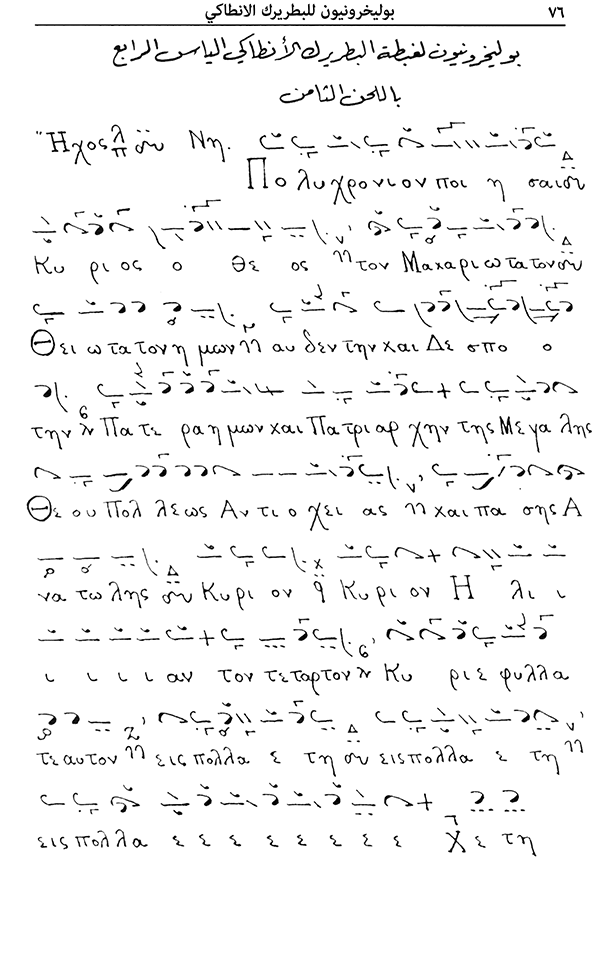 ٧٦ بوليخرونيون للبطريرك الانطاكي
بوليخرونيون لغبطة البطريرك الأنطاكي الياس الرابع
باللحن الثامن
Ἦχος λ π Νη.
Πο λυ χρο νι ον ποι η σαι
Κυ ρι ος ο θε ος τον Μα χα ρι ω τα τον
Θει ω τα τον η μων αυ δεν την και Δε σπο ο
την Πα τε ρα η μων και Πα τρι αρ χην της Με γα λης
Θε ου Πολ λεως Αν τι ο χει ας και πα σης Α
να τω λης Κυ ρι ον Κυ ρι ον Η λι ι
ι ι ι ι αν τον τε ταρ τον Κυ ρι ε φυ λλα
τε αυ τον εις πολλα ε τη εις πολλα ε τη
εις πολλα ε ε ε ε ε ε ε ε χ ε τη